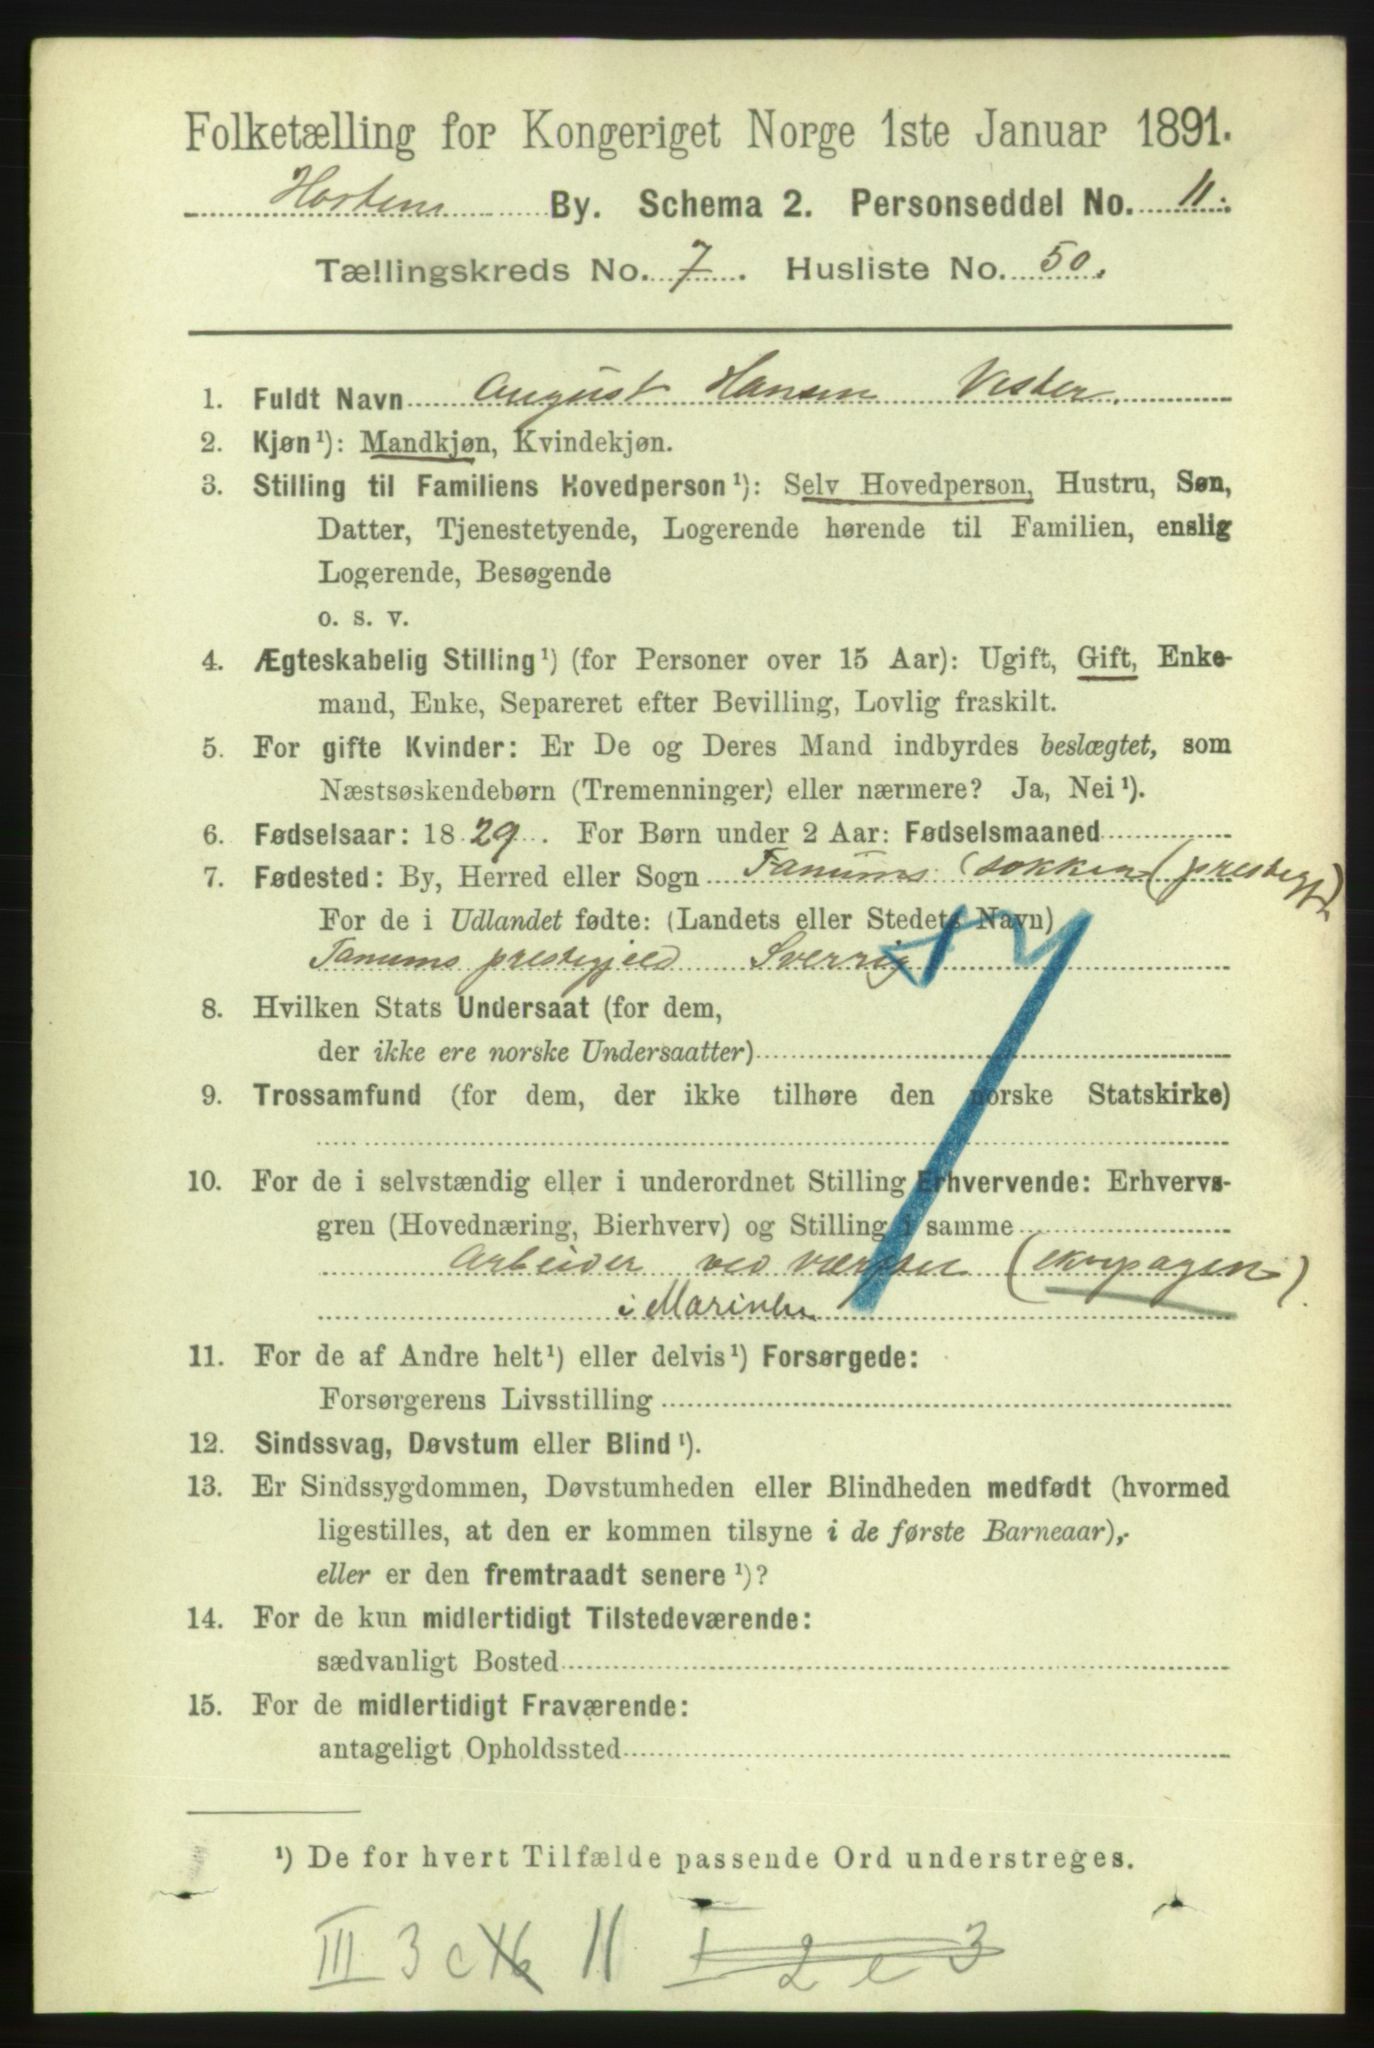 Folketælling for Kongeriget Norge 1ste Januar 1891.
Hortens By. Schema 2. Personseddel No. 11.
Tællingskreds No. 7. Husliste No. 50.
1. Fuldt Navn August Hansen Vister
2. Kjøn¹): Mandkjøn, Kvindekjøn.
3. Stilling til Familiens Hovedperson¹): Selv Hovedperson, Hustru, Søn,
Datter, Tjenestetyende, Logerende hørende til Familien, enslig
Logerende, Besøgende
o. s. v.
4. Ægteskabelig Stilling¹) (for Personer over 15 Aar): Ugift, Gift, Enke-
mand, Enke, Separeret efter Bevilling, Lovlig fraskilt.
5. For gifte Kvinder: Er De og Deres Mand indbyrdes beslægtet, som
Næstsøskendebørn (Tremenninger) eller nærmere? Ja, Nei¹).
6. Fødselsaar: 1829. For Børn under 2 Aar: Fødselsmaaned
7. Fødested: By, Herred eller Sogn Tanums sokken (prestegj.)
For de i Udlandet fødte: (Landets eller Stedets Navn)
Tanums prestegjeld Sverrig
8. Hvilken Stats Undersaat (for dem,
der ikke ere norske Undersaatter)
9. Trossamfund (for dem, der ikke tilhøre den norske Statskirke)
10. For de i selvstændig eller i underordnet Stilling Erhvervende: Erhvervs-
gren (Hovednæring, Bierhverv) og Stilling i samme
Arbeider ved værftet (ekvipagen)
i Marinen
11. For de af Andre helt¹) eller delvis¹) Forsørgede:
Forsørgerens Livsstilling
12. Sindssvag, Døvstum eller Blind¹).
13. Er Sindssygdommen, Døvstumheden eller Blindheden medfødt (hvormed
ligestilles, at den er kommen tilsyne i de første Barneaar),
eller er den fremtraadt senere¹)?
14. For de kun midlertidigt Tilstedeværende:
sædvanligt Bosted
15. For de midlertidigt Fraværende:
antageligt Opholdssted
¹) De for hvert Tilfælde passende Ord understreges.
III 3 c 16 11 I 2 e 3